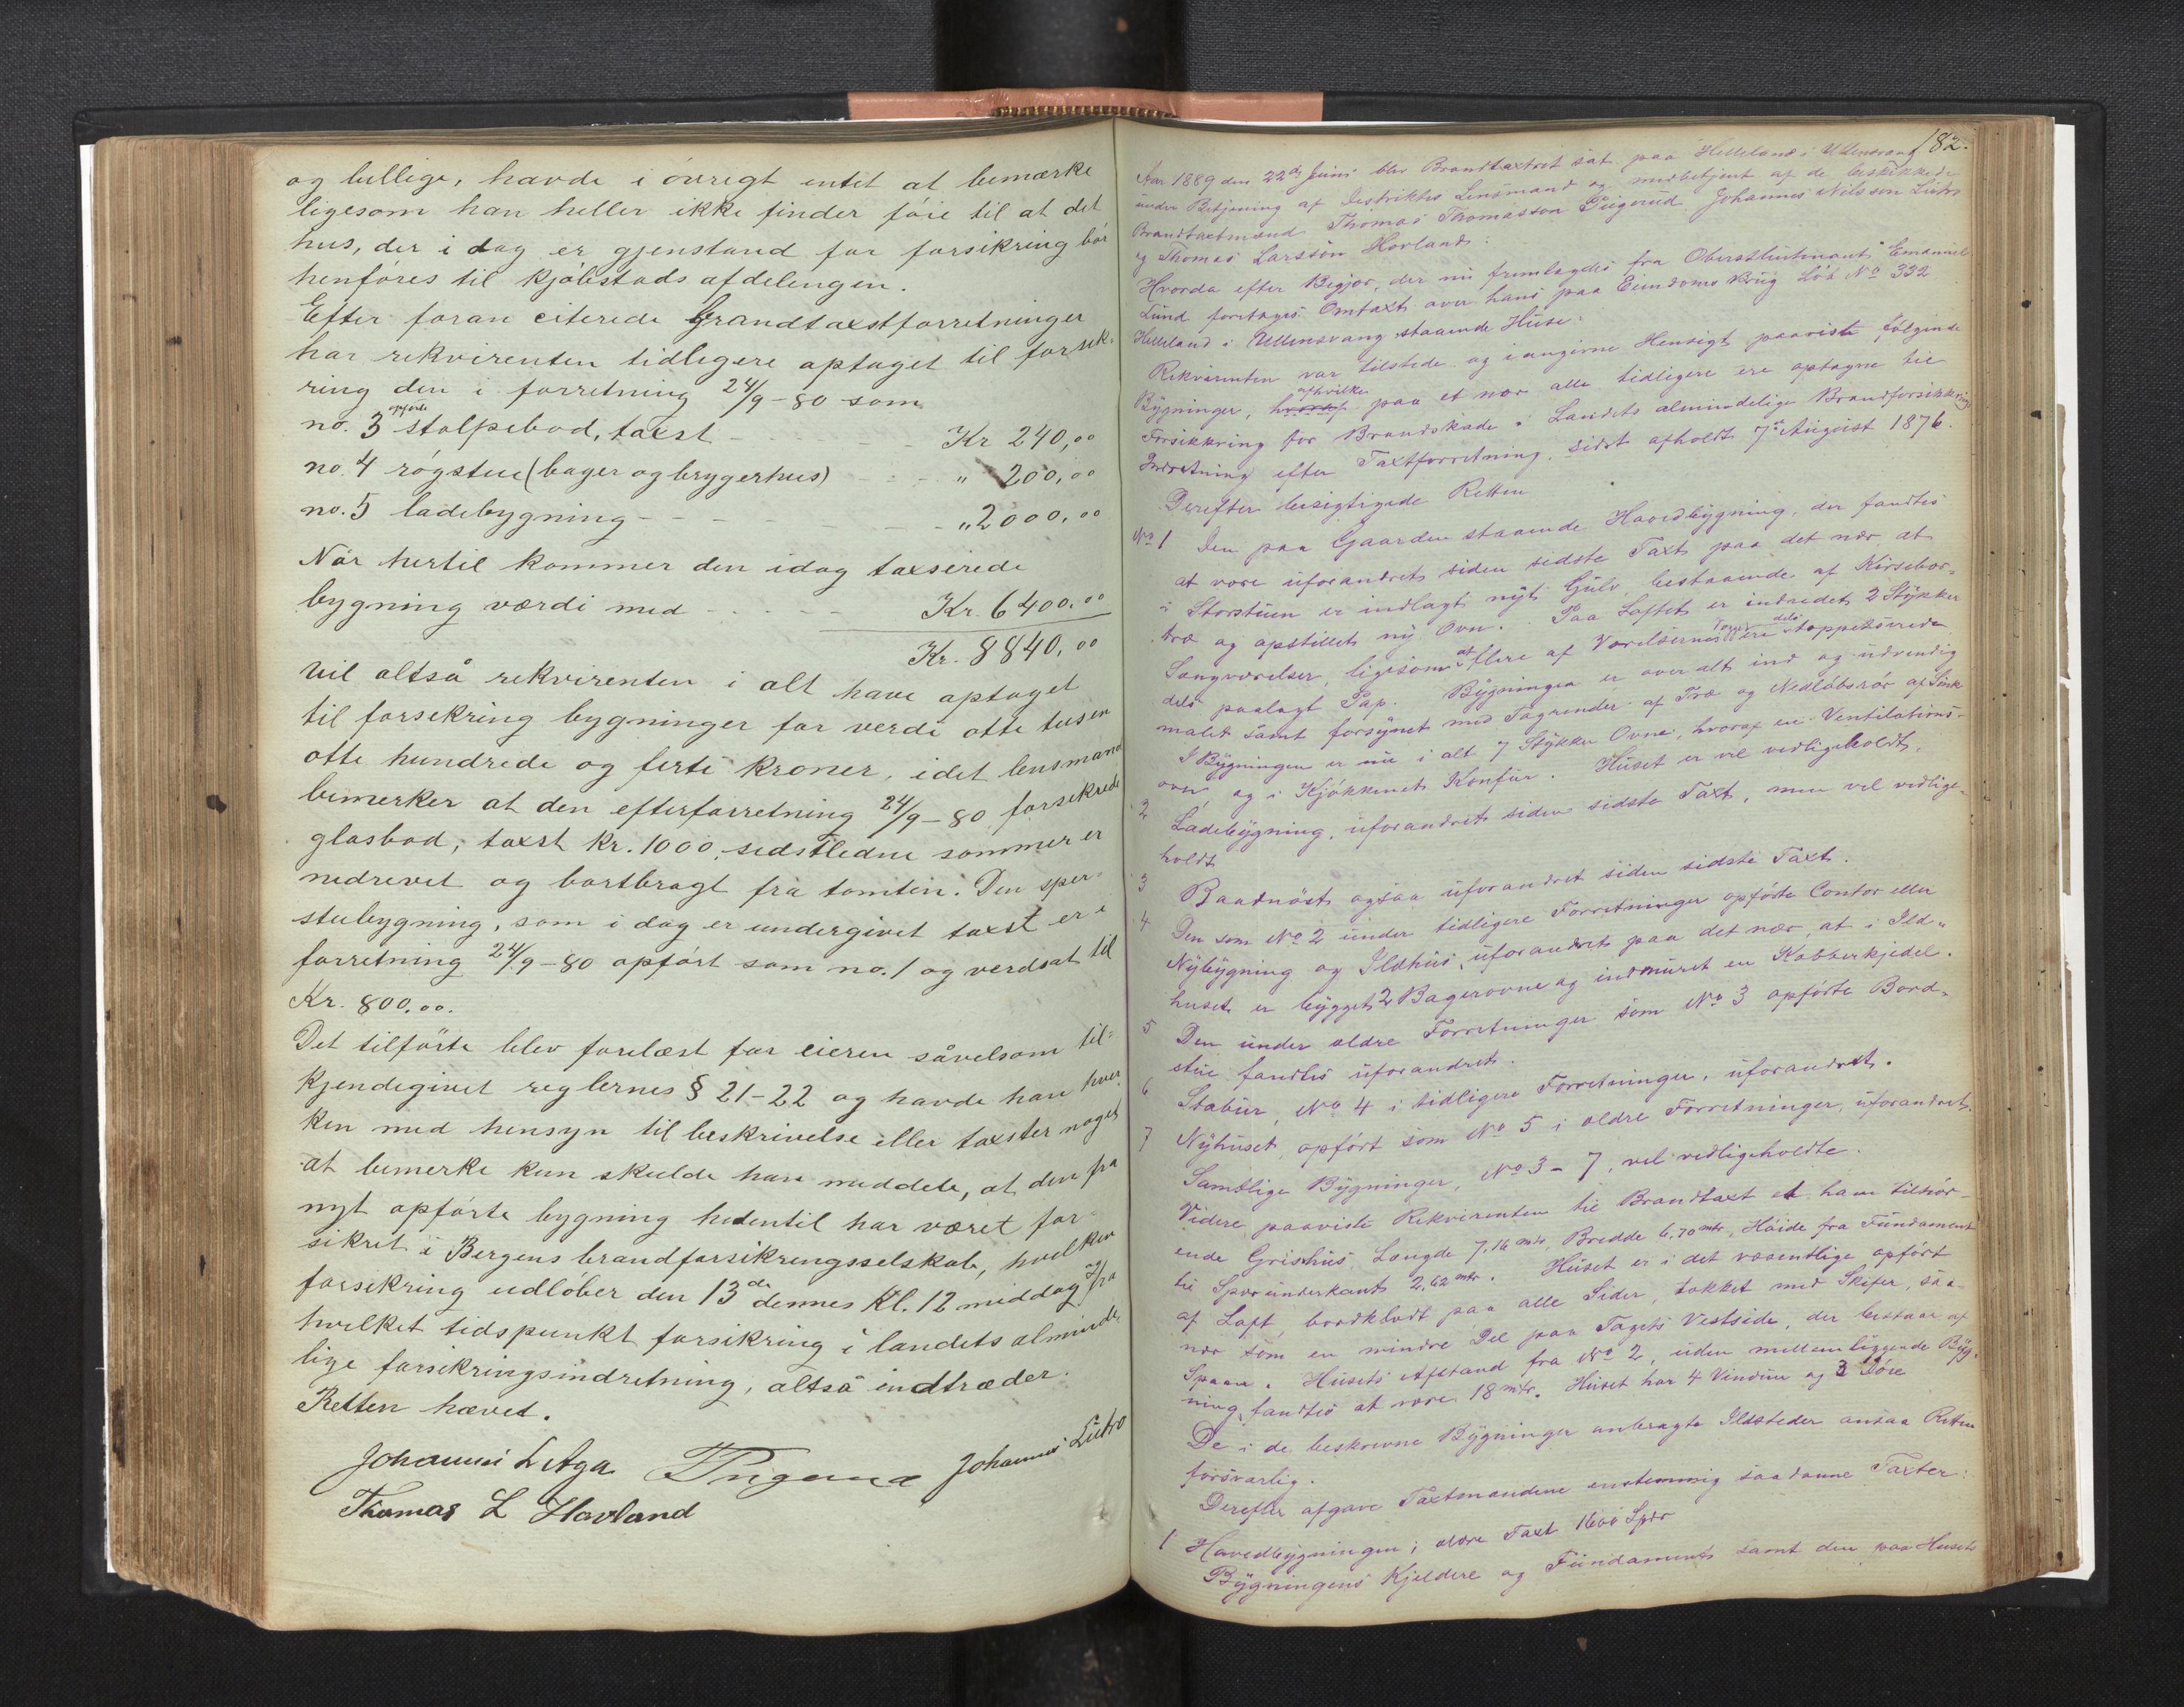 og billige, havde i övregt entet at bemærke
ligesom han heller ikke finder föie til at det
hus, der i dag er gjenstand for forsikring bör
henföres til kjöbstads afdelingen.
Efter foran citerede brandtaxstforretninger
har rekvirenten tidligere optaget til forsek-
ring den i forretning 24/9-80 som
opförte
no. 3 stolpebod, taxst - - - Kr 240,00
no. 4 rögstue (bager og brygerhus) - - - " 200,00
no. 5 ladebygning - - - - - - - " 2000,00
Når hertil kommer den idag taxserede
bygning værdi med - - - - - Kr. 6400.00
Kr. 8840,00
vil altså rekvirenten i alt have optaget
til forsekring bygninger for verdi otte tusen
otte hundrede og forti kroner, idet lensmand
bemerker at den efter forretning 24/9-80 forsekrede
glasbod, taxst kr. 1000, sedstledne sommer er
nedrevet og bortbragt fra tomten. Den sper-
stubygning, som i dag er undergivet taxst er i
forretning 24/9-80 opfört som no. 1 og verdsat til
Kr. 800,00.
Det tilförte blev forelæst for eieren såvelsom til=
kjendegivet reglernes § 21-22 og havde han hver
ken med hensyn til beskrivelse eller taxster noget
at bemerke kun skulde han meddele, at den på
nyt opförte bygning hedentil har været for-
sikret i Bergens brandforsikringsselskab, hvilken
forsekring udlöber den 13de dennes Kl. 12 middag fra
hvilket tidspunkt forsikring i landets alminde-
lige forsikringsindretning, altså indtræder.
Retten hævet.
Johannes L Aga Johannes Lutro
Thomas L Hovland
182.
Aar 1889 den 22de Juni blev Brandtaxtret sat paa Helleland i Ullensvang
under Betjening af Destriktets Lensmand og medbetjent af de beskikkede
Brandtaxtmænd Thomas Thomasson Johannes Nilsson Lutro
og Thomas Larsson Hovland:
Hvorda efter Begjær, der nu fremlagdes fra Oberstleutnant Emanuel
Lund foretoges Omtaxt over hans paa Eiendoms Brug Löb No 332
Helleland i Ullensvang staaende Huse.
Rekvirenten var tilstede og i angivne Hensigt paaviste fölgende
afhvilke
Bygninger, hvoraf paa et nær alle tidligere ere optagne til
Forsikkring for Brandskade i Landets almindelige Brandforsikkrings
Indretning efter Taxtforretning, sidst afholdt 7de August 1876.
Derefter besigtigede Retten
No 1 Den paa Gaarden staaende Hovedbygning, der fandtes
at være uforandret siden sidste Taxt paa det nær, at
i Storstuen er indlagt nyt Gulv, bestaaende af Kirsebær-
træ og opstillet ny Ovn. Paa Loftet er indredet 2 Stykker
Sengværelser, ligesom at flere af Værelserne ere dels tappetserede
dels paalagt Pap. Bygningen er over alt ind og udvendig
malet samt forsynet med Tagrender af Træ og Nedlöbsrör af Sink
I Bygningen er nu i alt 7 Stykker Ovne, hvoraf en Ventilations-
ovn, og i Kjökkenet Komfur. Huset er vel vedligeholdt.
2 Ladebygning, uforandret siden sidste Taxt, men vel vedlige-
holdt
3 Baadnöst ogsaa uforandret siden sidste Taxt.
4 Den som No 2 under tidligere Forretninger opförte Contor eller
Nybygning og Ildhus, uforandret paa det nær, at i Ild-
huset er bygget 2 Bagerovne og indmuret en Kobberkjedel.
5 Den under ældre Forretninger som No 3 opförte Bord-
stue fandtes uforandret.
6 Stabur, No 4 i tidligere Forretninger, uforandret.
7 Nyhuset, opfört som No 5 i ældre Forretninger, uforandret.
Samtlige Bygninger, No 3-7, vel vedligeholdte.
Videre paaviste Rekvirenten til Brandtaxt et ham tilhör-
ende Grishus, Længde 7,16 mtr, Bredde 6,70 mtr, Höide fra Fundament
til Sper underkant 2,62 mtr. Huset er i det væsentlige opfört
af Laft, bordklædt paa alle Sider, tækket med Skifer, saa
nær som en mindre Del paa Tagets Vestside, der bestaar af
Spaan. Husets Afstand fra No 2, uden mellemliggende Byg-
ning, fandtes at være 18 mtr. Huset har 4 Vinduer og 3 Döre
De i de beskrevne Bygninger anbragte Ildsteder ansaa Retten
forsvarlig.
Derefter afgave Taxtmændene enstemmig saadanne Taxter:
1 Hovedbygningen; ældre Taxt 1600 Spdr
Bygningens Kjeldere og Fundament samt den paa Husets